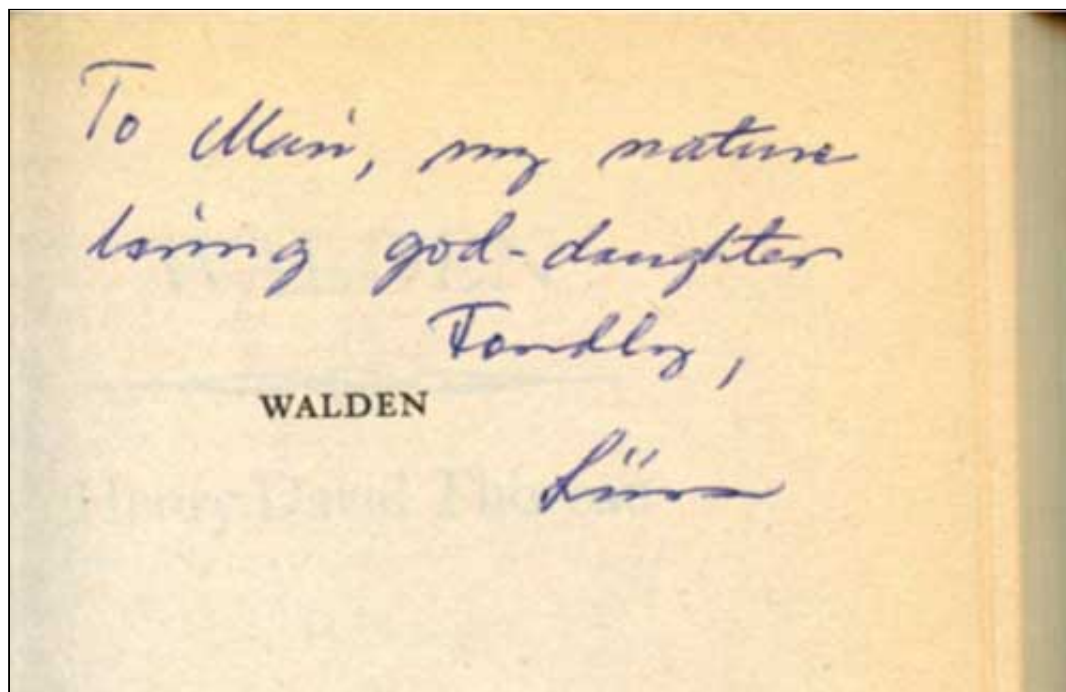 To Mairi, my nature
loving god-daughter
Fondly,
WALDEN